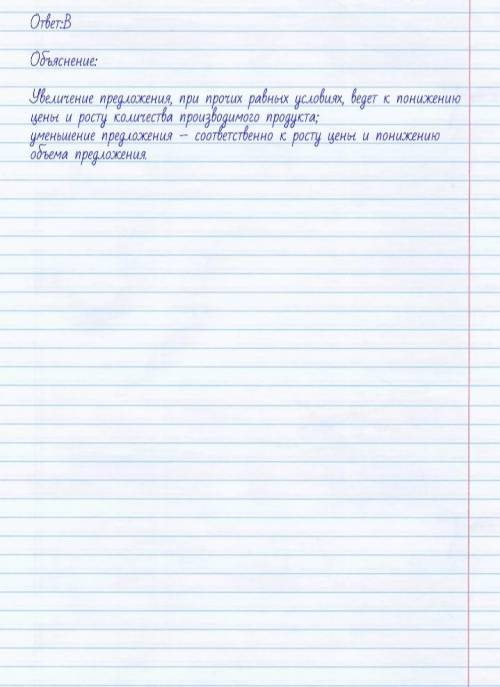 Ответ:В
Объяснение:
Увеличение предложения, при прочих равных условиях, ведет к понижению
цены и росту количества производимого продукта;
уменьшение предложения – соответственно к росту цены и понижению
объема предложения.